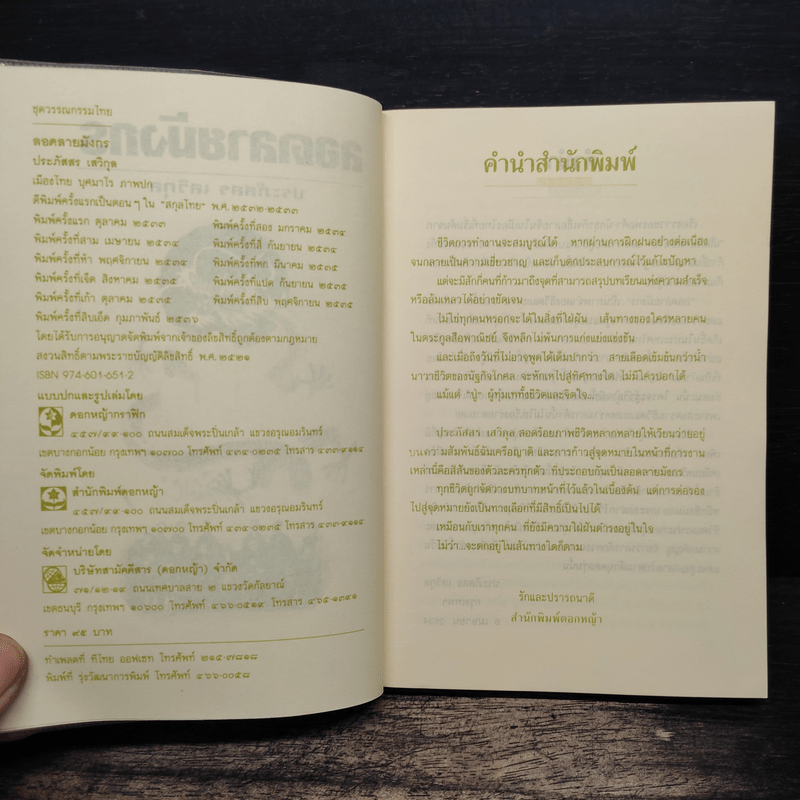 ชุดวรรณกรรมไทย
ลอดลายมังกร
ประภัสสร เสวิกุล
เมืองไทย บุศมาโร ภาพปก
ตีพิมพ์ครั้งแรกเป็นตอน ๆ ใน "สกุลไทย" พ.ศ.๒๕๓๒-๒๕๓๓
พิมพ์ครั้งแรก ตุลาคม ๒๕๓๓ พิมพ์ครั้งที่สอง มกราคม ๒๕๓๔
พิมพ์ครั้งที่สาม เมษายน ๒๕๓๔ พิมพ์ครั้งที่สี่ กันยายน ๒๕๓๔
พิมพ์ครั้งที่ห้า พฤศจิกายน ๒๕๓๔ พิมพ์ครั้งที่หก มีนาคม ๒๕๓๕
พิมพ์ครั้งที่เจ็ด สิงหาคม ๒๕๓๕ พิมพ์ครั้งที่แปด กันยายน ๒๕๓๕
พิมพ์ครั้งที่เก้า ตุลาคม ๒๕๓๕ พิมพ์ครั้งที่สิบ พฤศจิกายน ๒๕๓๕
พิมพ์ครั้งที่สิบเอ็ด กุมภาพันธ์ ๒๕๓๖
โดยได้รับการอนุญาตจัดพิมพ์จากเจ้าของลิขสิทธิ์ถูกต้องตามกฎหมาย
สงวนสิทธิ์ตามพระราชบัญญัติลิขสิทธิ์ พ.ศ.๒๕๒๑
ISBN 974-601-651-2
แบบปกและรูปเล่มโดย
ดอกหญ้ากราฟิก
๔๕๗/๙๙-๑๐๐ ถนนสมเด็จพระปิ่นเกล้า แขวงอรุณอมรินทร์
เขตบางกอกน้อย กรุงเทพฯ ๑๐๗๐๐ โทรศัพท์ ๔๓๔-๐๒๓๕ โทรสาร ๔๓๓-๙๑๑๔
จัดพิมพ์โดย
สำนักพิมพ์ดอกหญ้า
๔๕๗/๙๙-๑๐๐ ถนนสมเด็จพระปิ่นเกล้า แขวงอรุณอมรินทร์
เขตบางกอกน้อย กรุงเทพฯ ๑๐๗๐๐ โทรศัพท์ ๔๓๔-๐๒๓๕ โทรสาร ๔๓๓-๙๑๑๔
จัดจำหน่ายโดย
บริษัทสามัคคีสาร (ดอกหญ้า) จำกัด
๗๑/๑๒-๑๙ ถนนเทศบาลสาย ๒ แขวงวัดกัลยาณ์
เขตธนบุรี กรุงเทพฯ ๑๐๖๐๐ โทรศัพท์ ๔๖๖-๐๕๑๙ โทรสาร ๔๖๕-๑๓๙๑
ราคา ๙๕ บาท
ทำเพลตที่ ทีไทย ออฟเซท โทรศัพท์ ๒๑๕-๗๘๑๘
พิมพ์ที่ รุ่งวัฒนาการพิมพ์ โทรศัพท์ ๔๖๖-๐๐๕๘
คำนำสำนักพิมพ์
ชีวิตการทำงานจะสมบูรณ์ได้ หากผ่านการฝึกฝนอย่างต่อเนื่อง
จนกลายเป็นความเชี่ยวชาญ และเก็บตกประสบการณ์ไว้แก้ไขปัญหา
แต่จะมีสักกี่คนที่ก้าวมาถึงจุดที่สามารถสรุปบทเรียนแห่งความสำเร็จ
หรือล้มเหลวได้อย่างชัดเจน
ไม่ใช่ทุกคนหรอกจะได้ในสิ่งที่ใฝ่ฝัน เส้นทางของใครหลายคน
ในตระกูลสือพาณิชย์ จึงหลีกไม่พ้นการแก่งแย่งแข่งขัน
และเมื่อถึงวันที่ไม่อาจพูดได้เต็มปากว่า สายเลือดเข้มข้นกว่าน้ำ
นาวาชีวิตของนัฐกิจไกศล จะหักเหไปสู่ทิศทางใด ไม่มีใครบอกได้
แม้แต่ "ปู่" ผู้ทุ่มเททั้งชีวิตและจิตใจ...
ประภัสสร เสวิกุล สอดร้อยภาพชีวิตหลากหลายให้เวียนว่ายอยู่
บนความสัมพันธ์ฉันเครือญาติ และการก้าวสู่จุดหมายในหน้าที่การงาน
เหล่านี้คือสีสันของตัวละครทุกตัว ที่ประกอบกันเป็นลอดลายมังกร
ทุกชีวิตถูกจัดวางบทบาทหน้าที่ไว้แล้วในเบื้องต้น แต่การต่อรอง
ไปสู่จุดหมายยังเป็นทางเลือกที่มีสิทธิ์เป็นไปได้
เหมือนกับเราทุกคน ที่ยังมีความใฝ่ฝันดำรงอยู่ในใจ
ไม่ว่า...จะตกอยู่ในเส้นทางใดก็ตาม
รักและปรารถนาดี
สำนักพิมพ์ดอกหญ้า